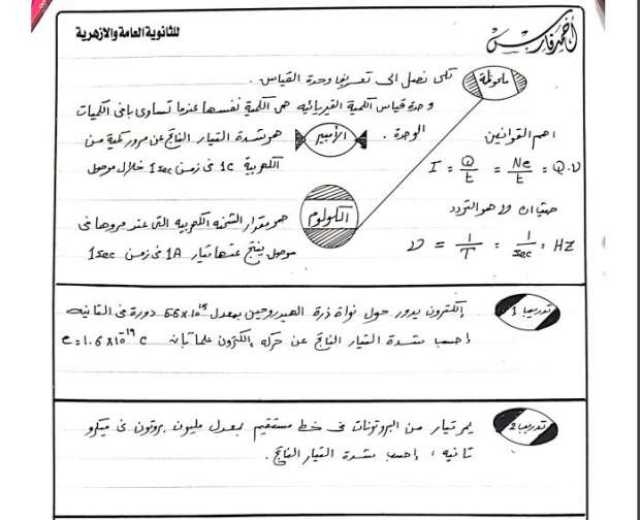 للثانوية العامة والازهرية
أحمد فارس
ملحوظة
لكى نصل الى تعريف وحدة القياس .
وحدة قياس الكمية الفيزيائيه هى الكمية نفسها عندما تساوى باقى الكميات
الوحدة .
الأمبير
هو شدة التيار الناتج عن مرور كمية من
الكهربية 1C فى زمن 1sec خلال موصل
الكولوم
هو مقدار الشحنه الكهربيه التى عند مرورها فى
موصل ينتج عنها تيار 1A فى زمن 1sec
اهم القوانين
I = Q/t = Ne/t = Q.ν
حيث ان ν هو التردد
ν = 1/T = 1/sec = HZ
تدريب 1
إلكترون يدور حول نواة ذرة الهيدروجين بمعدل 6.6x10¹⁵ دورة فى الثانيه
احسب شدة التيار الناتج عن حركه إلكترون علما بان e=1.6x10⁻¹⁹ C
تدريب 2
يمر تيار من البروتونات فى خط مستقيم بمعدل مليون بروتون فى ميكرو
ثانيه ، احسب شدة التيار الناتج .